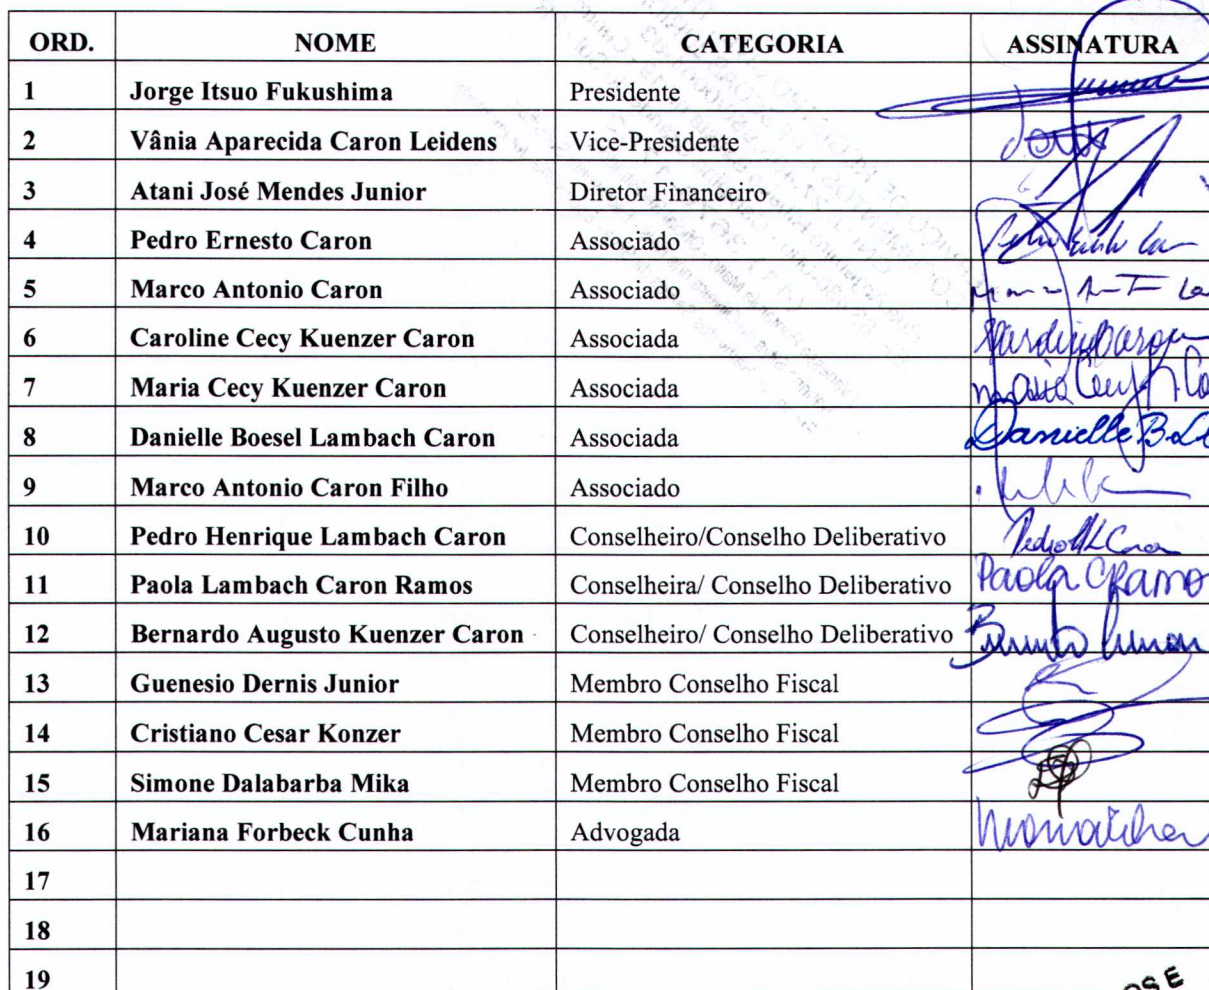 ORD. NOME CATEGORIA ASSINATURA
1 Jorge Itsuo Fukushima Presidente
2 Vânia Aparecida Caron Leidens Vice-Presidente
3 Atani José Mendes Junior Diretor Financeiro
4 Pedro Ernesto Caron Associado
5 Marco Antonio Caron Associado
6 Caroline Cecy Kuenzer Caron Associada
7 Maria Cecy Kuenzer Caron Associada
8 Danielle Boesel Lambach Caron Associada Danielle B.
9 Marco Antonio Caron Filho Associado
10 Pedro Henrique Lambach Caron Conselheiro/Conselho Deliberativo
11 Paola Lambach Caron Ramos Conselheira/ Conselho Deliberativo Paola CRamo
12 Bernardo Augusto Kuenzer Caron Conselheiro/ Conselho Deliberativo
13 Guenesio Dernis Junior Membro Conselho Fiscal
14 Cristiano Cesar Konzer Membro Conselho Fiscal
15 Simone Dalabarba Mika Membro Conselho Fiscal
16 Mariana Forbeck Cunha Advogada
17
18
19
OS E